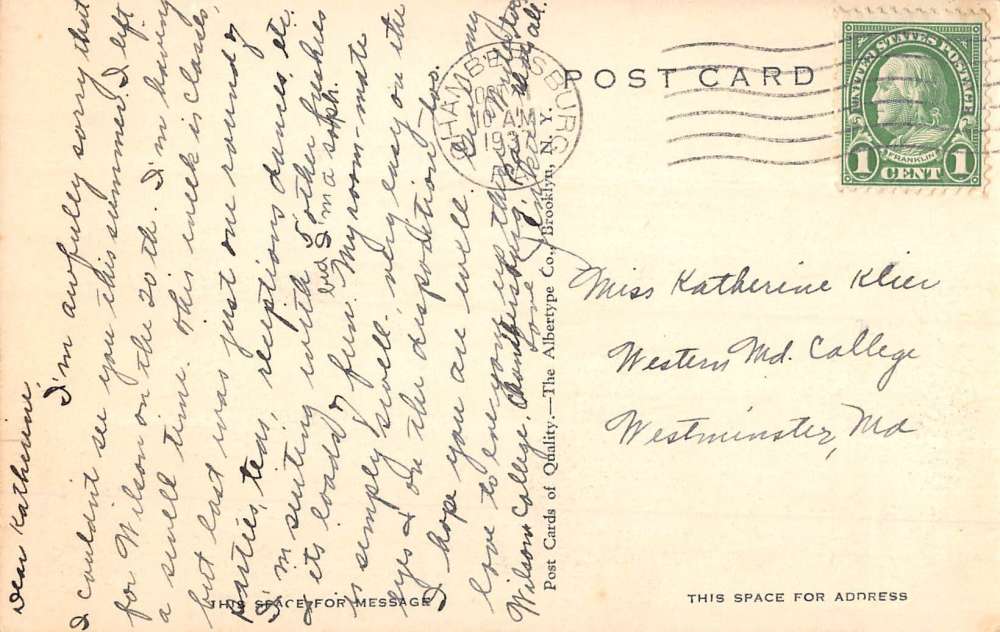 Dear Katherine,
I'm awfully sorry that
I couldn't see you this summer. I left
for Wilson on the 20th. I'm having
a swell time. This week is classes,
but last was just one round of
parties, teas, receptions dances etc.
I'm suiting with 5 other freshies
& its loads of fun. My room-mate
but I'm a soph.
is simply swell. very easy on the
eyes & on the disposition, too.
I hope you are well. Give my
love to everyone up there. Write to
Wilson College, Chambersburg, Pa.
Love
THIS SPACE FOR MESSAGE
Post Cards of Quality.—The Albertype Co., Brooklyn, N. Y.
CHAMBERSBURG
10 AM
193
POST CARD
UNITED STATES POSTAGE
FRANKLIN
1 CENT 1
Miss Katherine Klier
Western Md. College
Westminster, Md
THIS SPACE FOR ADDRESS